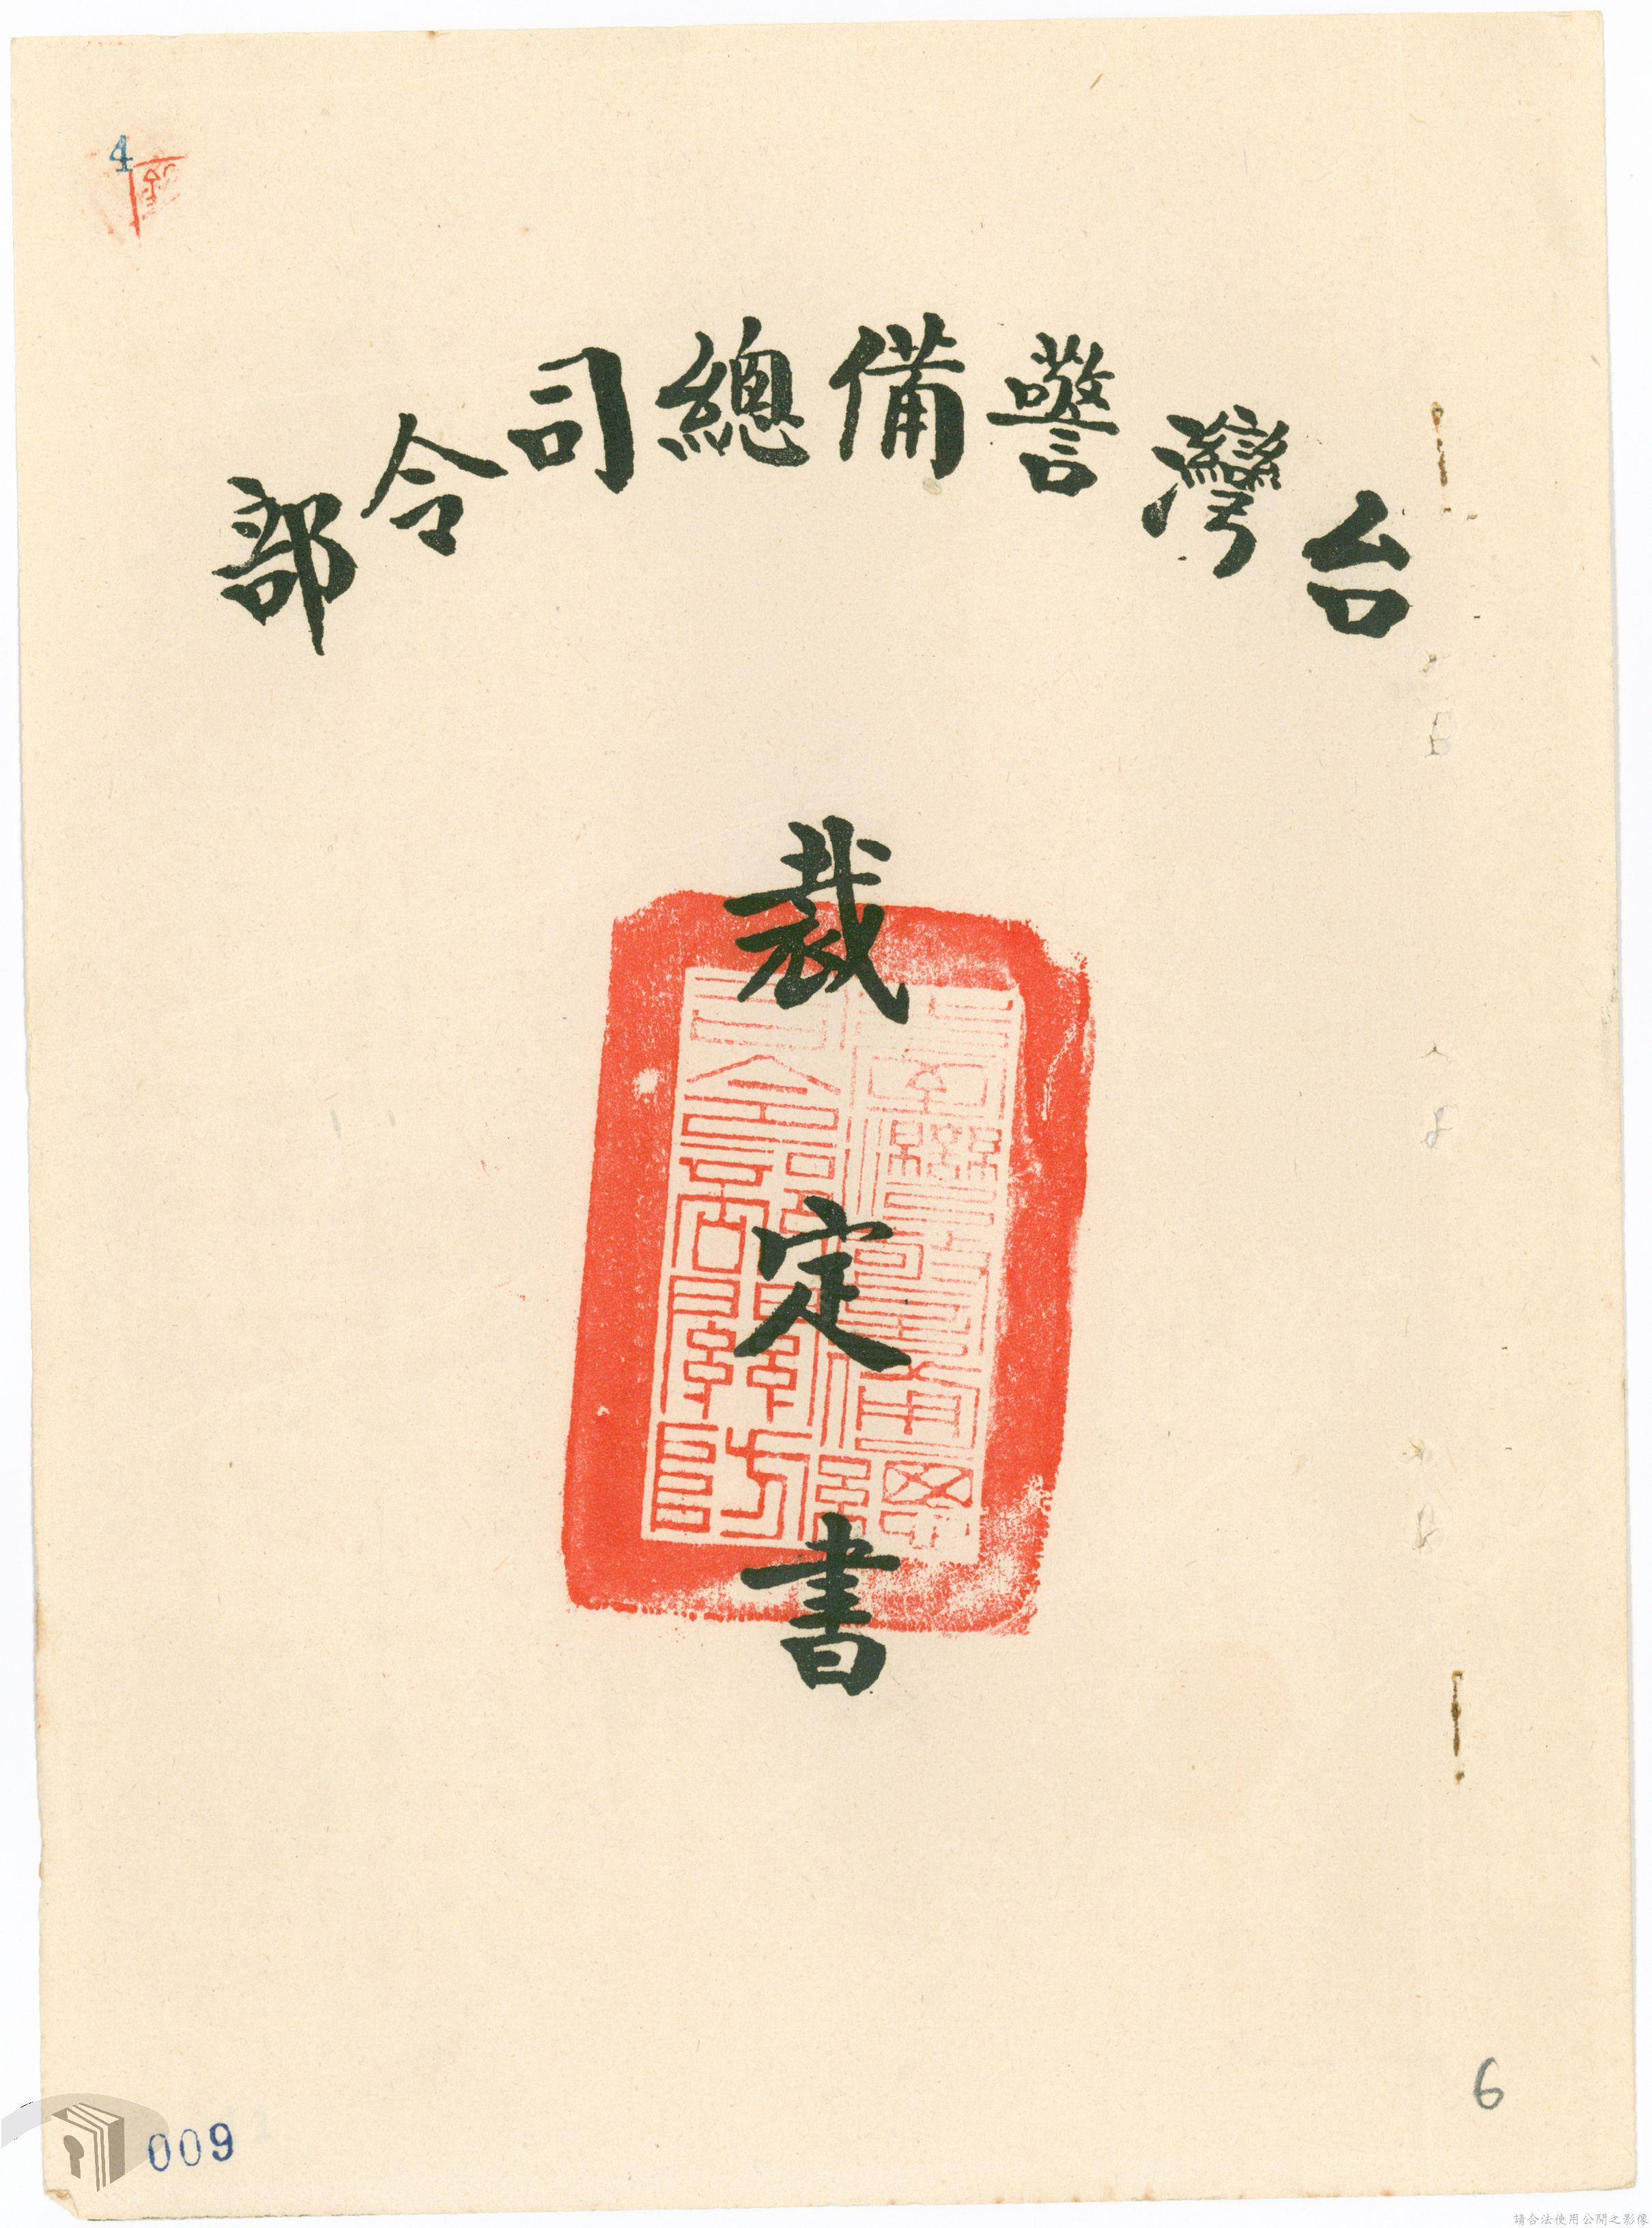 4
台灣警備總司令部
裁定書
6
009
請合法使用公開之影像